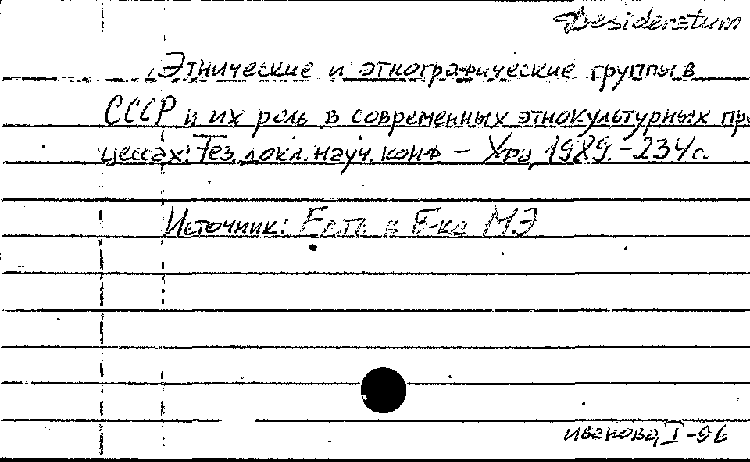 Desideratum
Этнические и этнографические группы в
СССР и их роль в современных этнокультурных про
цессах: Тез. докл. науч. конф – 1989. – 234 с.
Источник: Есть в Б-ке МЭ
Иванова, I-96